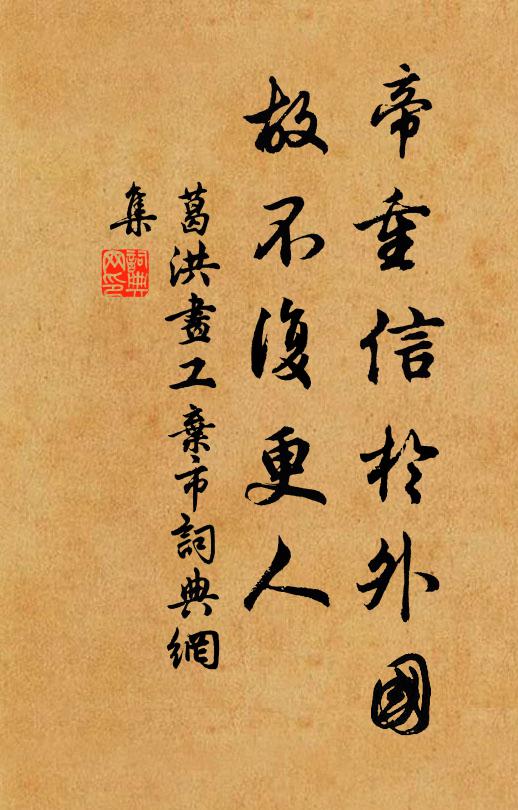 帝重信於外國
故不復更人
葛洪畫工棄市詞典網
集
詞典
網印